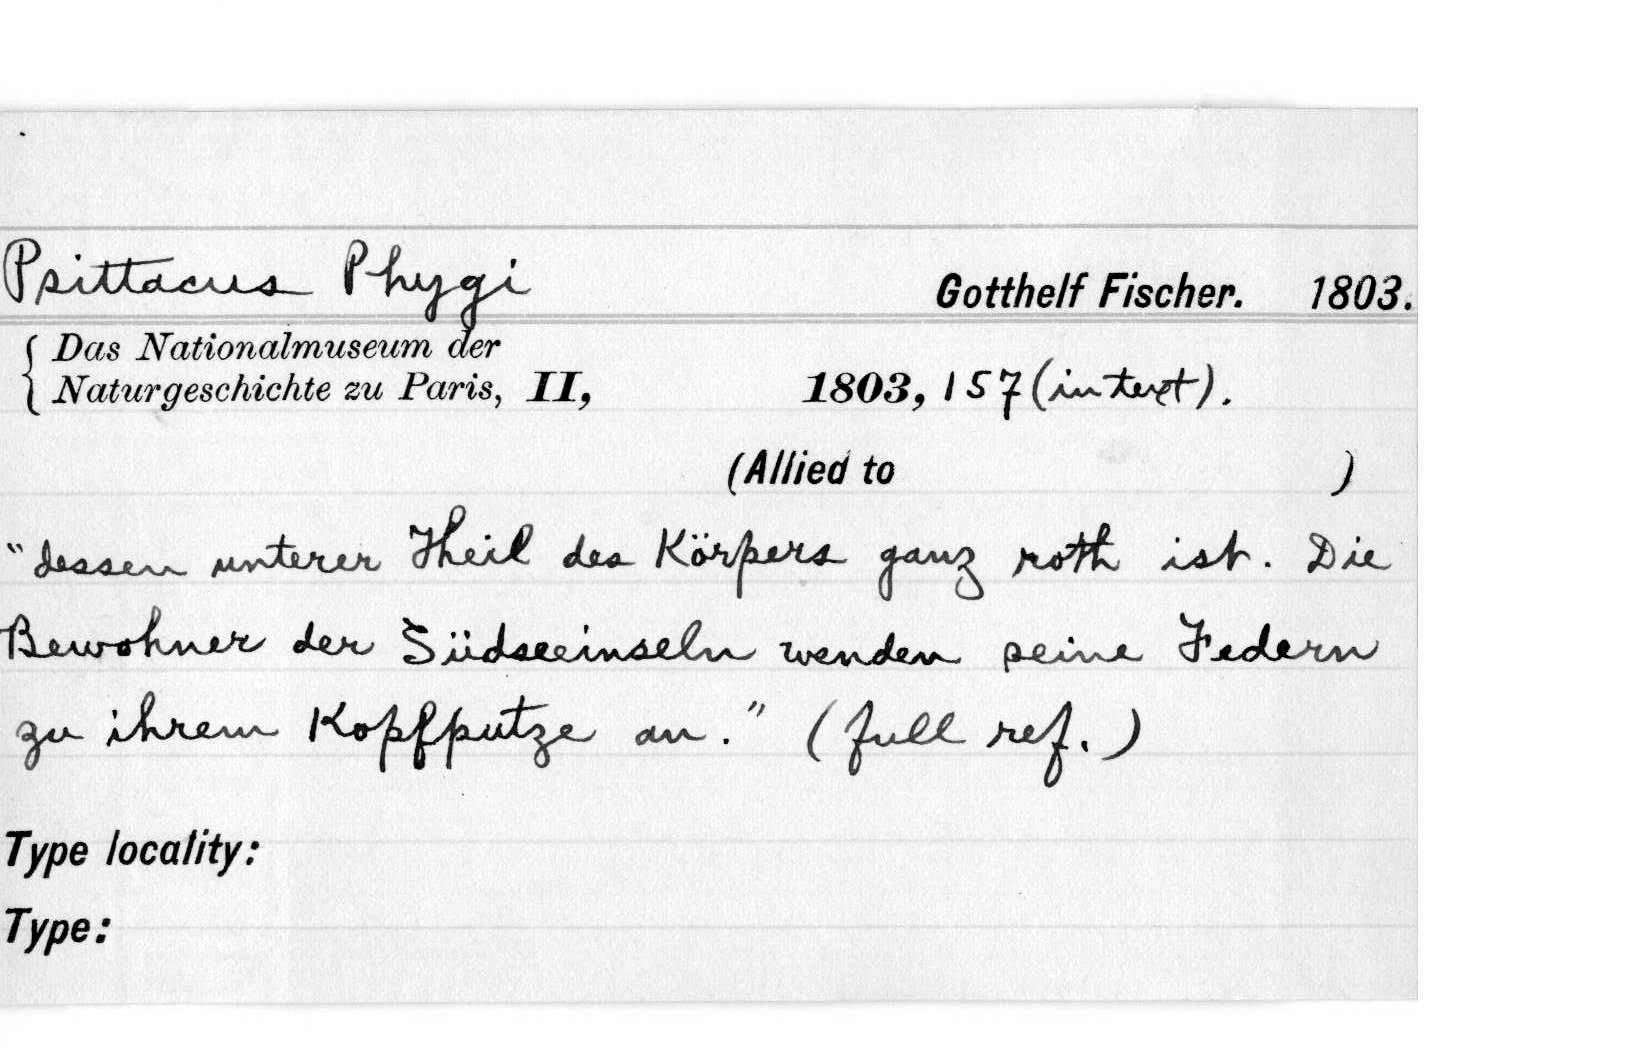 Psittacus Phygi Gotthelf Fischer. 1803.
{ Das Nationalmuseum der
Naturgeschichte zu Paris, II, 1803, 157 (in text).
(Allied to )
"dessen unterer Theil des Körpers ganz roth ist. Die
Bewohner der Südseeinseln wenden seine Federn
zu ihrem Kopfputze an." (full ref.)
Type locality:
Type: